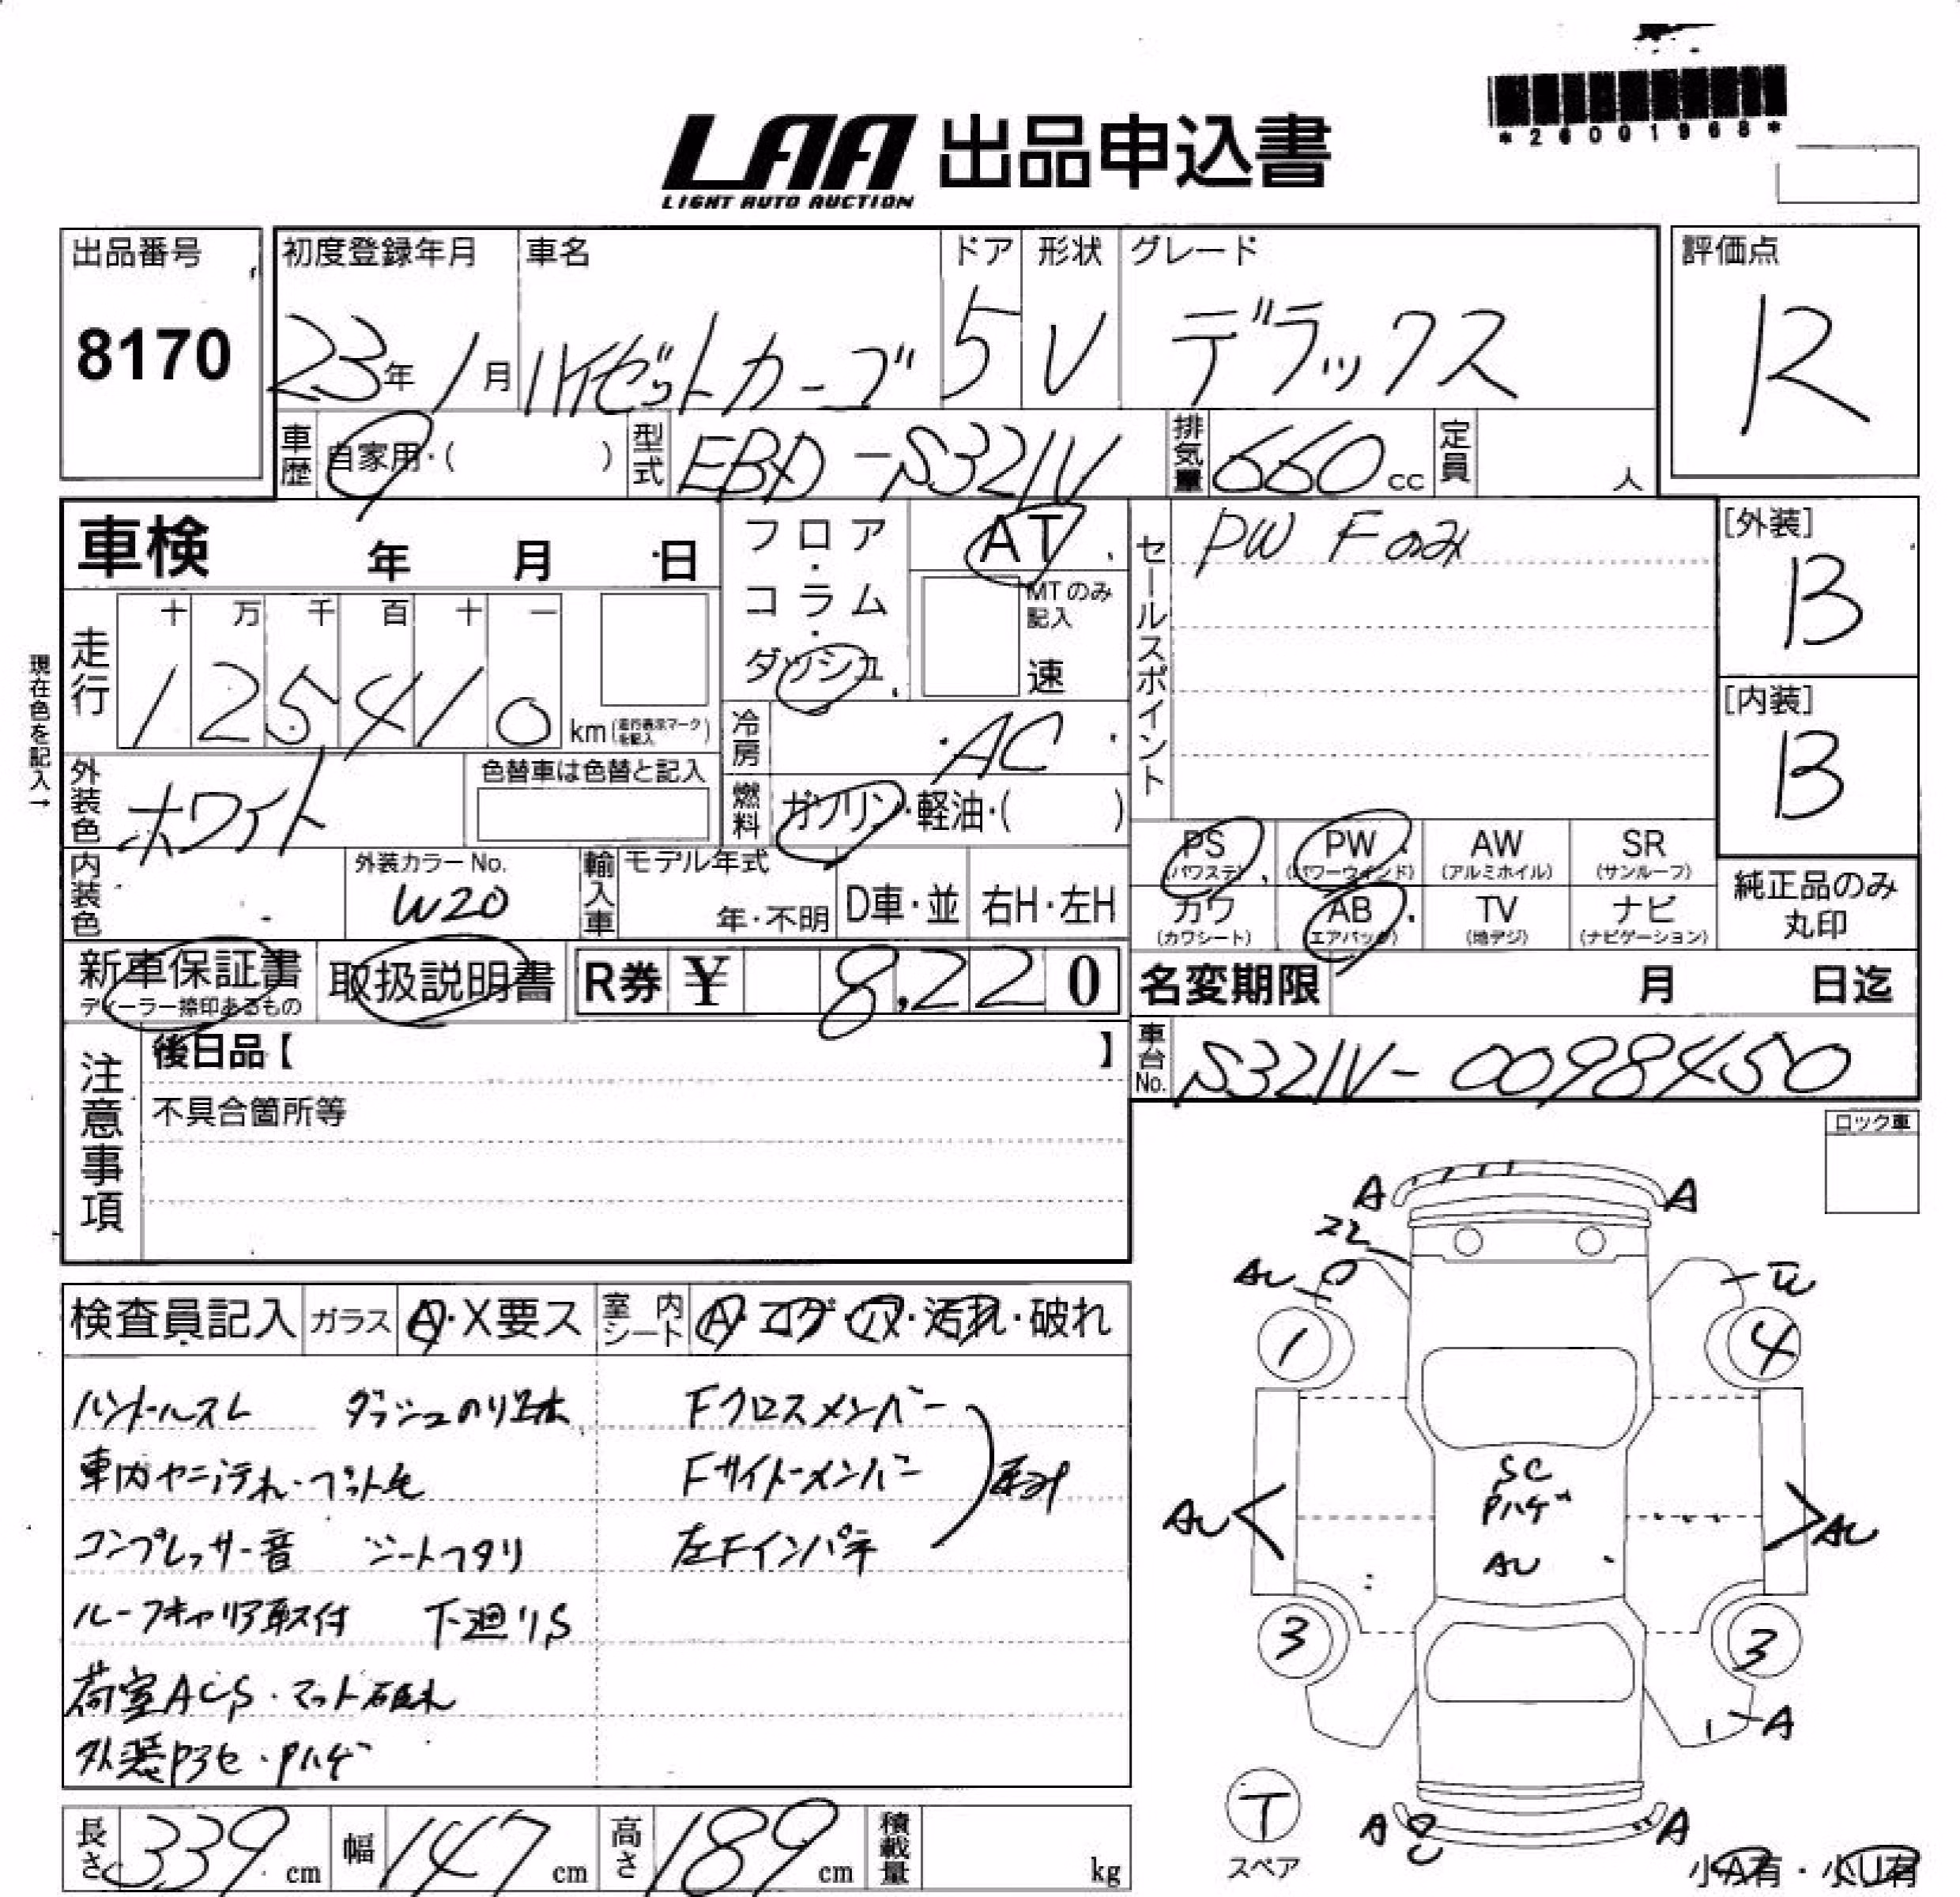 *26001968*
LAA 出品申込書
LIGHT AUTO AUCTION
出品番号
8170
初度登録年月
23年 1月
車名
ハイゼットカーゴ
ドア
5
形状
V
グレード
デラックス
評価点
R
車歴
自家用・( )
型式
EBD-S321V
排気量
660cc
定員
人
車検 年 月 日
フロア・コラム・ダッシュ
AT
MTのみ記入
速
セールスポイント
PW Fのみ
[外装]
B
[内装]
B
現在色を記入→
走行
十 万 千 百 十 一
1 2 5 4 1 0
km(走行表示マークを記入)
冷房
AC
外装色
ホワイト
色替車は色替と記入
燃料
ガソリン・軽油・( )
内装色
外装カラーNo.
W20
輸入車
モデル年式
年・不明
D車・並
右H・左H
PS
(パワステ)
PW
(パワーウィンド)
AW
(アルミホイル)
SR
(サンルーフ)
カワ
(カワシート)
AB
(エアバッグ)
TV
(地デジ)
ナビ
(ナビゲーション)
純正品のみ
丸印
新車保証書
ディーラー捺印あるもの
取扱説明書
R券 ¥ 8,220
名変期限 月 日迄
車台No.
S321V-0098450
注意事項
後日品【 】
不具合箇所等
ロック車
検査員記入
ガラス
A・X要ス
室内シート
A・コゲ・穴・汚れ・破れ
ハンドルスレ
Fクロスメンバー
Fサイドメンバー
コンプレッサー音
シートフタリ
左Fインパネ
ルーフキャリア取付
下廻りS
荷室ACS・マット破れ
Pハゲ
A A
AU
1 4
SC
Pハゲ
AU
AU AU
3 3
A
T
スペア
A A
小A有・小U有
長さ 339cm
幅 147cm
高さ 189cm
積載量 kg